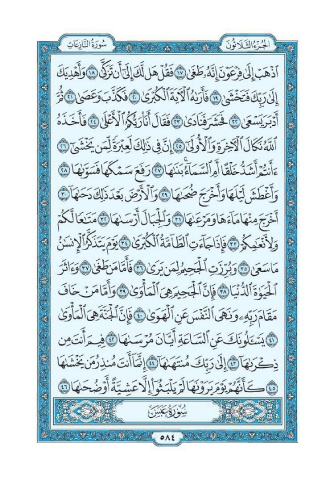 سورة النازعات الجزء الثلاثون
اذهب إلى فرعون إنه طغى ١٧ فقل هل لك إلى أن تزكى ١٨ وأهديك
إلى ربك فتخشى ١٩ فأراه الآية الكبرى ٢٠ فكذب وعصى ٢١ ثم
أدبر يسعى ٢٢ فحشر فنادى ٢٣ فقال أنا ربكم الأعلى ٢٤ فأخذه
الله نكال الآخرة والأولى ٢٥ إن في ذلك لعبرة لمن يخشى ٢٦
ءأنتم أشد خلقا أم السماء بناها ٢٧ رفع سمكها فسواها ٢٨
وأغطش ليلها وأخرج ضحاها ٢٩ والأرض بعد ذلك دحاها ٣٠
أخرج منها ماءها ومرعاها ٣١ والجبال أرساها ٣٢ متاعا لكم
ولأنعامكم ٣٣ فإذا جاءت الطامة الكبرى ٣٤ يوم يتذكر الإنسان
ما سعى ٣٥ وبرزت الجحيم لمن يرى ٣٦ فأما من طغى ٣٧ وءاثر
الحيوة الدنيا ٣٨ فإن الجحيم هي المأوى ٣٩ وأما من خاف
مقام ربه ونهى النفس عن الهوى ٤٠ فإن الجنة هي المأوى
٤١ يسئلونك عن الساعة أيان مرساها ٤٢ فيم أنت من
ذكراها ٤٣ إلى ربك منتهاها ٤٤ إنما أنت منذر من يخشاها
٤٥ كأنهم يوم يرونها لم يلبثوا إلا عشية أو ضحاها ٤٦
سورة عبس
٥٨٤